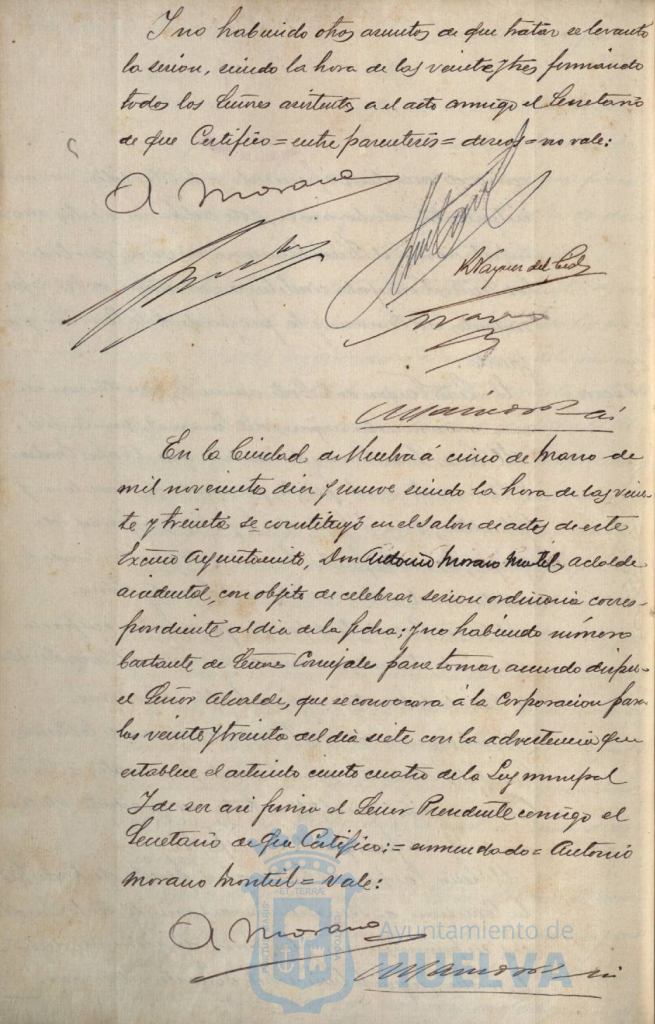 Y no habiendo otros asuntos de que tratar se levanto
la sesion, siendo la hora de las veinte y tres firmando
todos los Señores asistentes a el acto conmigo el Secretario
de que Certifico = entre parentesis = deseos = no vale:
A Morano
R Vazquez del Cid
En la Ciudad de Huelva á cinco de Marzo de
mil novecientos diez y nueve siendo la hora de las vein-
te y treinta se constituyó en el Salon de actos de este
Excmo Ayuntamiento, Don Antonio Morano Montiel, alcalde
accidental, con objeto de celebrar sesion ordinaria corres-
pondiente al dia de la fecha; y no habiendo número
bastante de Señores Concejales para tomar acuerdo dispu-
el Señor Alcalde, que se convocara á la Corporacion para
las veinte y treinta del dia siete con la advertencia que
establece el articulo ciento cuatro de la Ley municipal
Y de ser asi firma el Señor Presidente conmigo el
Secretario de que Certifico: = enmendado = Antonio
Morano Montiel = vale:
A Morano
Ayuntamiento de
HUELVA